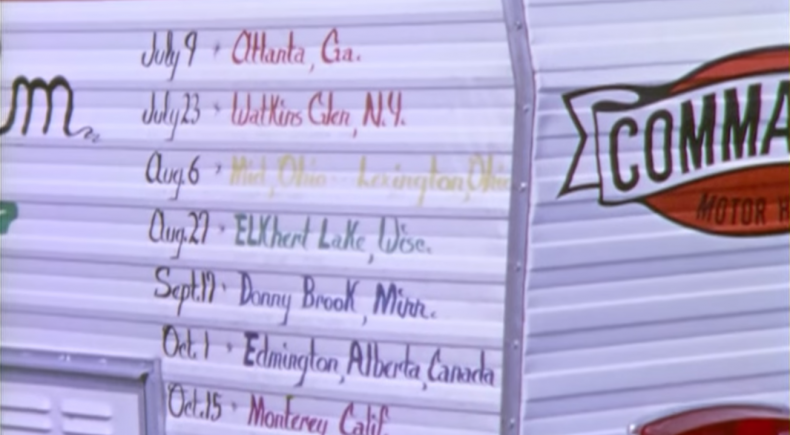 m
July 9 · Atlanta, Ga.
July 23 · Watkins Glen, N.Y.
Aug. 6 · Mid, Ohio - Lexington, Ohio
Aug. 27 · ELKhert Lake, Wisc.
Sept. 17 · Donny Brook, Minn.
Oct. 1 · Edmington, Alberta, Canada
Oct. 15 · Monterey Calif
COMMA
MOTOR H